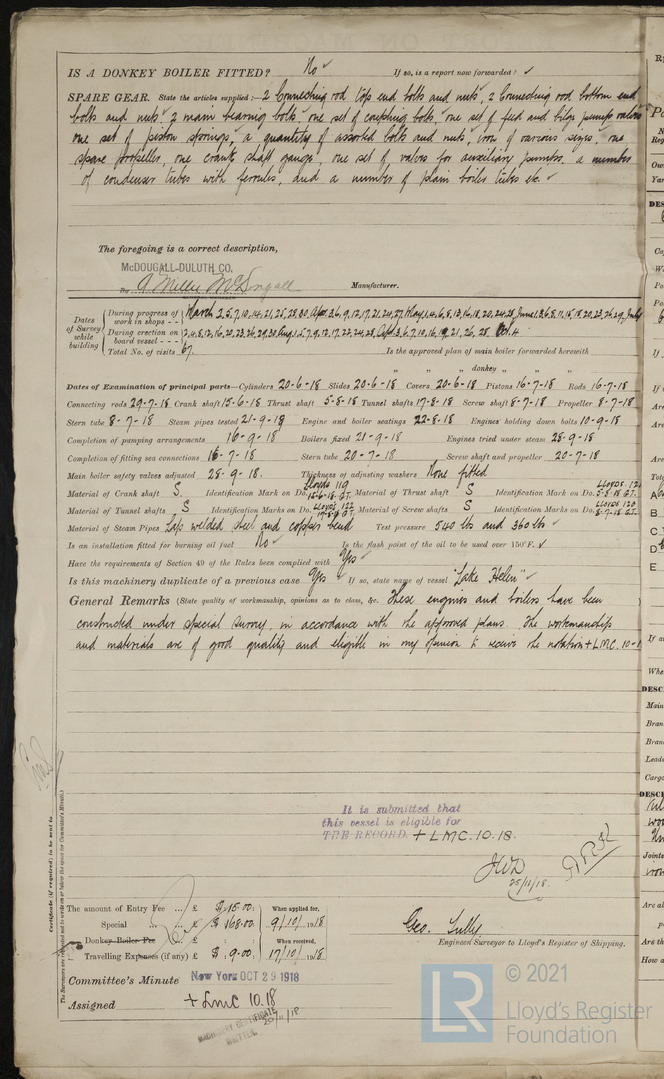 IS A DONKEY BOILER FITTED? No ✓ If so, is a report now forwarded? ✓
SPARE GEAR. State the articles supplied:— 2 Connecting rod top end bolts and nuts, 2 Connecting rod bottom end
bolts and nuts, 2 main bearing bolts, one set of coupling bolts, one set of feed and bilge pump valves
one set of piston springs, a quantity of assorted bolts and nuts, iron of various sizes, one
spare propeller, one crank shaft gauge, one set of valves for auxiliary pumps, a number
of condenser tubes with ferrules, and a number of plain boiler tubes etc. ✓
The foregoing is a correct description,
McDOUGALL-DULUTH CO.
By A. Miller McDougall Manufacturer.
Dates of Survey while building
During progress of work in shops - - March 2.5.7.10.14.21.25.28.30. Apr. 3.6.9.12.17.21.24.27. May 1.4.6.8.13.16.18.20.24.28. June 1.3.6.8.11.15.18.20.23.26.29. July
During erection on board vessel - - - 2.4.8.12.16.20.23.26.29.30. Aug 1.5.7.9.12.17.22.24.28. Sept. 3.6.7.10.16.19.21.26.28. Oct. 4
Total No. of visits 67. Is the approved plan of main boiler forwarded herewith
" " " donkey " " "
Dates of Examination of principal parts—Cylinders 20-6-18 Slides 20-6-18 Covers 20-6-18 Pistons 16-7-18 Rods 16-7-18
Connecting rods 29-7-18 Crank shaft 15-6-18 Thrust shaft 5-8-18 Tunnel shafts 17-8-18 Screw shaft 8-7-18 Propeller 8-7-18
Stern tube 8-7-18 Steam pipes tested 21-9-18 Engine and boiler seatings 22-8-18 Engines holding down bolts 10-9-18
Completion of pumping arrangements 16-9-18 Boilers fixed 21-9-18 Engines tried under steam 28-9-18
Completion of fitting sea connections 16-7-18 Stern tube 20-7-18 Screw shaft and propeller 20-7-18
Main boiler safety valves adjusted 28-9-18. Thickness of adjusting washers None fitted
Material of Crank shaft S. Identification Mark on Do. Lloyds 119 15-6-18 G.T. Material of Thrust shaft S Identification Mark on Do. LLOYDS. 5-8-18 G.T.
Material of Tunnel shafts S Identification Marks on Do. LLOYDS 122 17-8-18 G.T. Material of Screw shafts S Identification Marks on Do. LLOYDS 120 8-7-18 G.T.
Material of Steam Pipes Lap welded steel and copper bend Test pressure 540 lbs and 360 lbs ✓
Is an installation fitted for burning oil fuel No ✓ Is the flash point of the oil to be used over 150°F. ✓
Have the requirements of Section 49 of the Rules been complied with Yes ✓
Is this machinery duplicate of a previous case Yes ✓ If so, state name of vessel "Lake Helen" ✓
General Remarks (State quality of workmanship, opinions as to class, &c. These engines and boilers have been
constructed under special survey, in accordance with the approved plans. The workmanship
and materials are of good quality and eligible in my opinion to receive the notation + LMC. 10-1
It is submitted that
this vessel is eligible for
THE RECORD. + LMC. 10.18.
25/11/18.
Certificate (if required) to be sent to
The Surveyors are requested not to write on or below the space for Committee's Minute.
The amount of Entry Fee ... £ $ 15.00: When applied for,
Special ... ... £ $ 168.00: 9/10/1918
Donkey Boiler Fee ... £ : : When received,
Travelling Expenses (if any) £ $ : 9.00: 17/10/1918
Geo. Tully
Engineer Surveyor to Lloyd's Register of Shipping.
Committee's Minute New York OCT 29 1918
Assigned + LMC 10.18
MACHINERY CERTIFICATE
WRITTEN. 20/11/18
© 2021
LR
Lloyd's Register
Foundation